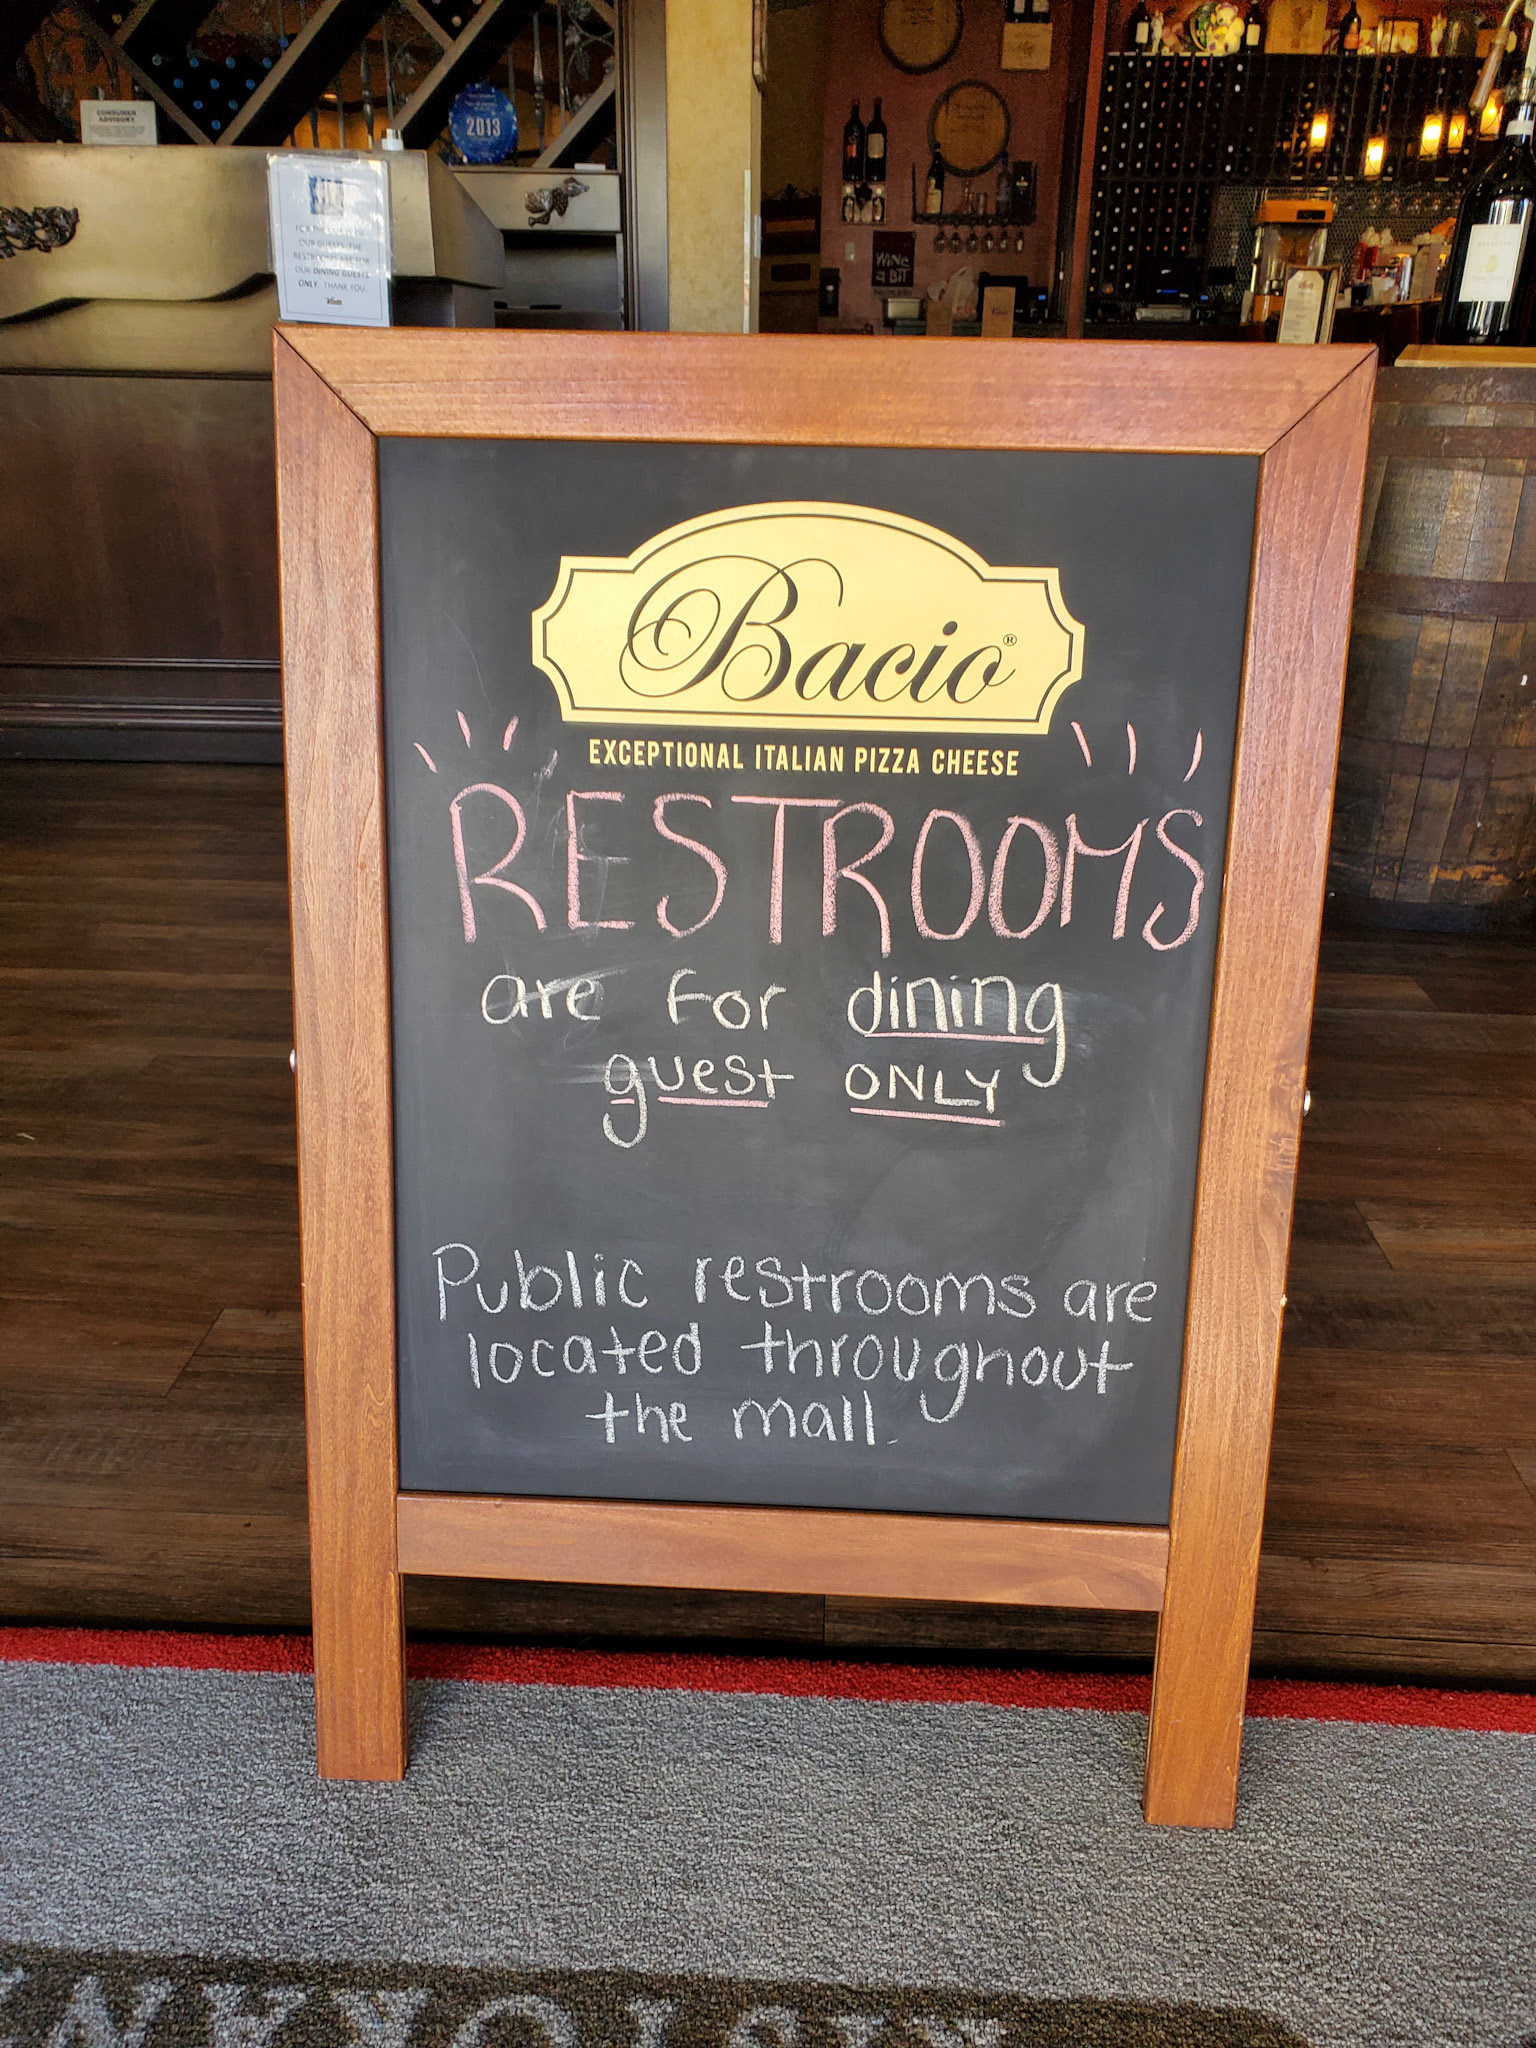 CONSUMER
ADVISORY
2013
FOR THE
OUR GUESTS, THE
RESTROOMS ARE FOR
OUR DINING GUESTS
ONLY. THANK YOU.
WiNE
a BiT
Bacio®
EXCEPTIONAL ITALIAN PIZZA CHEESE
RESTROOMS
are for dining
guest ONLY
Public restrooms are
located throughout
the mall.